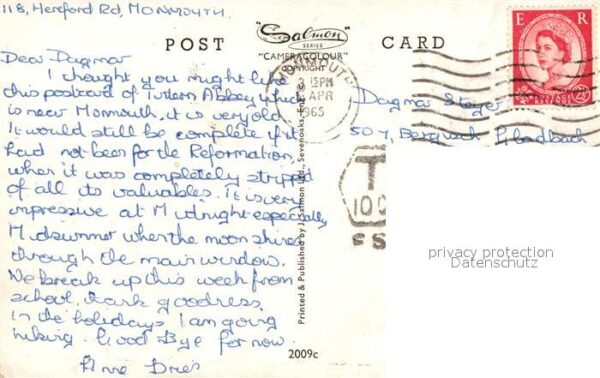 118, Hereford Rd, MONMOUTH
POST CARD
"Salmon
SERIES
"CAMERACOLOUR"
COPYRIGHT
Dear Dagmar
I thought you might like
this postcard of Tintern Abbey which
is near Monmouth, it is very old.
It would still be complete if it
had not been for the Reformation,
when it was completely stripped
of all its valuables. It is very
impressive at Midnight especially
Midsummer when the moon shines
through the main window.
We break up this week from
school, thank goodness.
In the holidays I am going
hiking. Good Bye for now.
Printed & Published by J. Salmon Ltd., Sevenoaks, Eng. ©
2009c
MONMOUTH
15 PM
APR
1965
E R
POSTAGE REVENUE
2½
T
10 C
Dagmar
507, Gladbach
privacy protection
Datenschutz